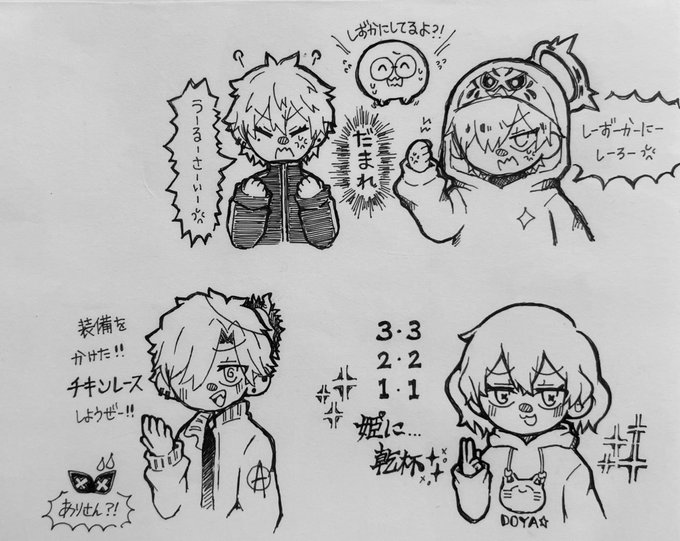 しずかにしてるよ?!
うーるーさーいー
だまれ
しーずーかーにー
しーろー
装備を
かけた!!
チキンレース
しようぜー!!
ありさん?!
3・3
2・2
1・1
姫に…
乾杯
DOYA☆